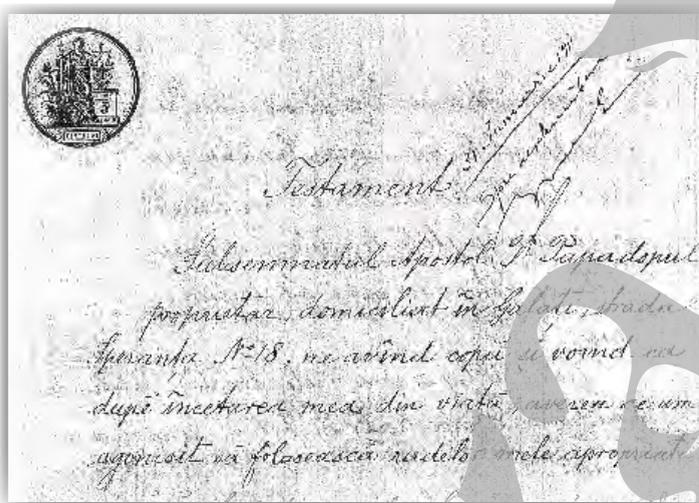 Testament
Subsemnatul Apostol Papadopul
proprietar, domiciliat în Galati, strada
Speranța Nº 18, ne avînd copii și voind ca
după încetarea mea din viata averea ce am
agonisit să folosească rudelor mele apropiate